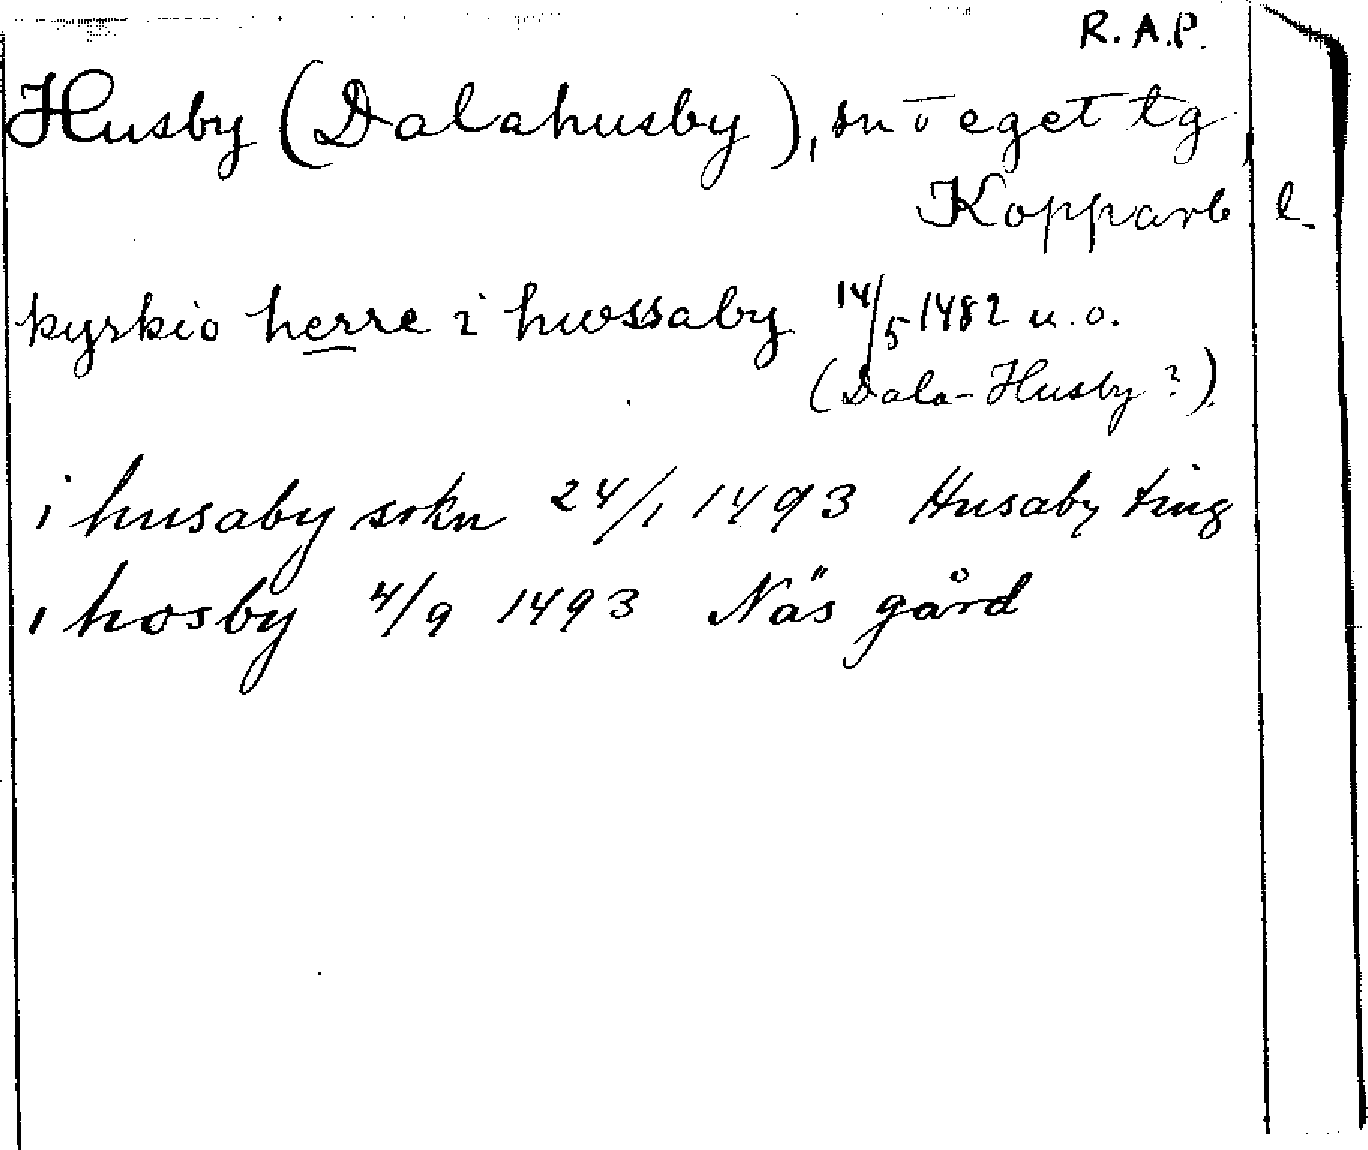 R.A.P.
Husby (Dalahusby), sn o eget tg
Kopparb l.
kyrkio herre i hwssaby 14/5 1482 u.o.
(Dala-Husby?)
i husaby sokn 24/1 1493 Husaby ting
i hosby 4/9 1493 Näs gård